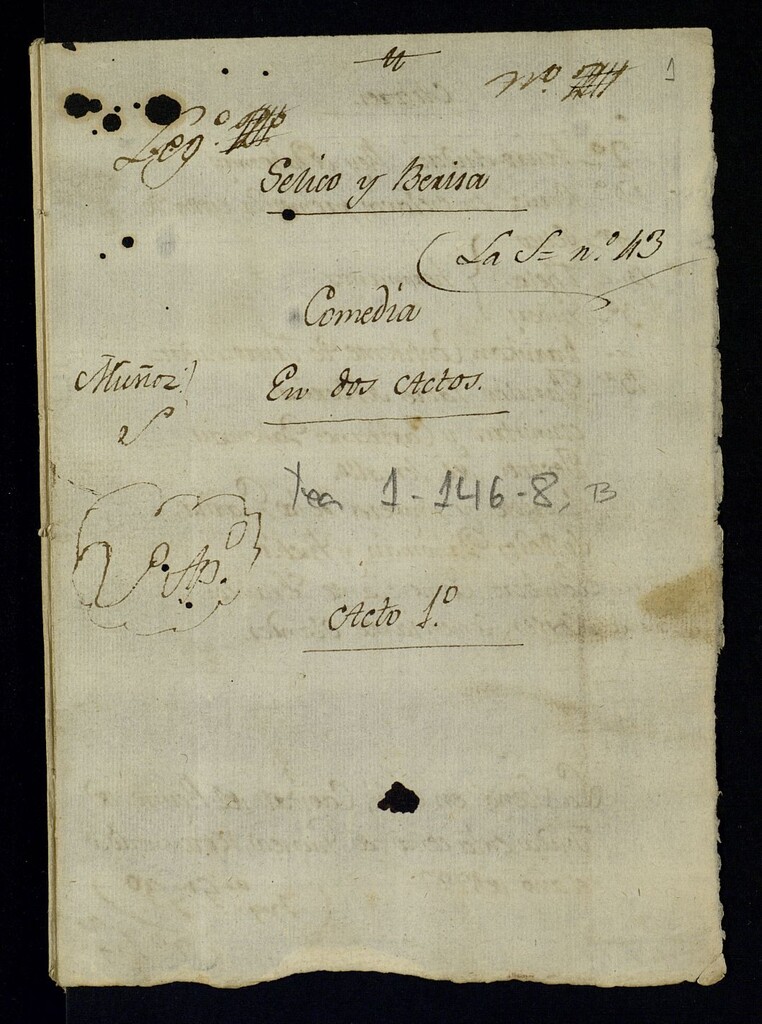 1
Leg.º
Nº
Selico y Berisa
La S= n.º 43
Comedia
Muñoz
En dos Actos.
Tea 1-146-8, B
Ap.
Acto 1.º